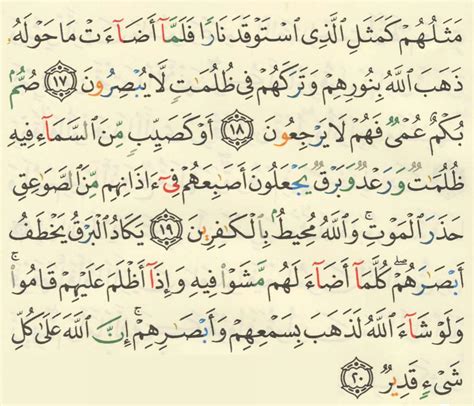 مَثَلُهُمْ كَمَثَلِ ٱلَّذِى ٱسْتَوْقَدَ نَارًا فَلَمَّآ أَضَآءَتْ مَا حَوْلَهُۥ
ذَهَبَ ٱللَّهُ بِنُورِهِمْ وَتَرَكَهُمْ فِى ظُلُمَٰتٍ لَّا يُبْصِرُونَ ١٧ صُمٌّۢ
بُكْمٌ عُمْىٌ فَهُمْ لَا يَرْجِعُونَ ١٨ أَوْ كَصَيِّبٍ مِّنَ ٱلسَّمَآءِ فِيهِ
ظُلُمَٰتٌ وَرَعْدٌ وَبَرْقٌ يَجْعَلُونَ أَصَٰبِعَهُمْ فِىٓ ءَاذَانِهِم مِّنَ ٱلصَّوَٰعِقِ
حَذَرَ ٱلْمَوْتِ ۚ وَٱللَّهُ مُحِيطٌۢ بِٱلْكَٰفِرِينَ ١٩ يَكَادُ ٱلْبَرْقُ يَخْطَفُ
أَبْصَٰرَهُمْ ۖ كُلَّمَآ أَضَآءَ لَهُم مَّشَوْا۟ فِيهِ وَإِذَآ أَظْلَمَ عَلَيْهِمْ قَامُوا۟ ۚ
وَلَوْ شَآءَ ٱللَّهُ لَذَهَبَ بِسَمْعِهِمْ وَأَبْصَٰرِهِمْ ۚ إِنَّ ٱللَّهَ عَلَىٰ كُلِّ
شَىْءٍ قَدِيرٌ ٢٠